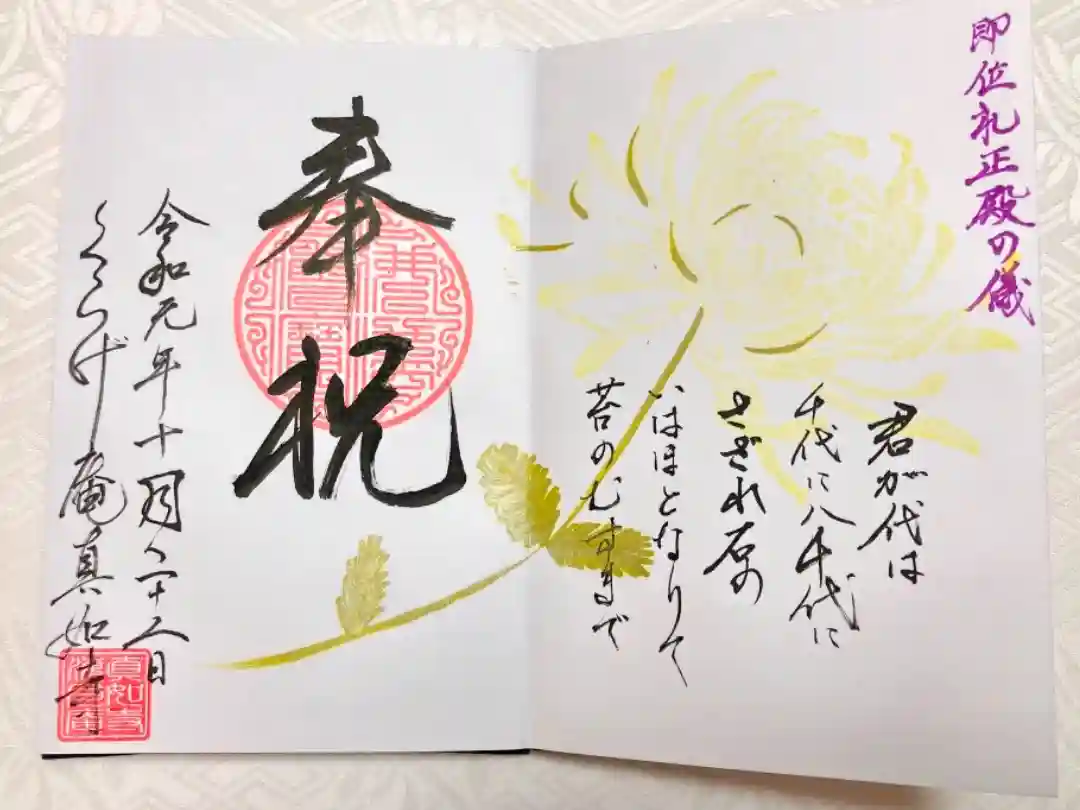 即位礼正殿の儀
君が代は
千代に八千代に
さざれ石の
いはほとなりて
苔のむすまで
奉祝
佛法僧寶
令和元年十月二十二日
くらげ庵真如寺
真如寺